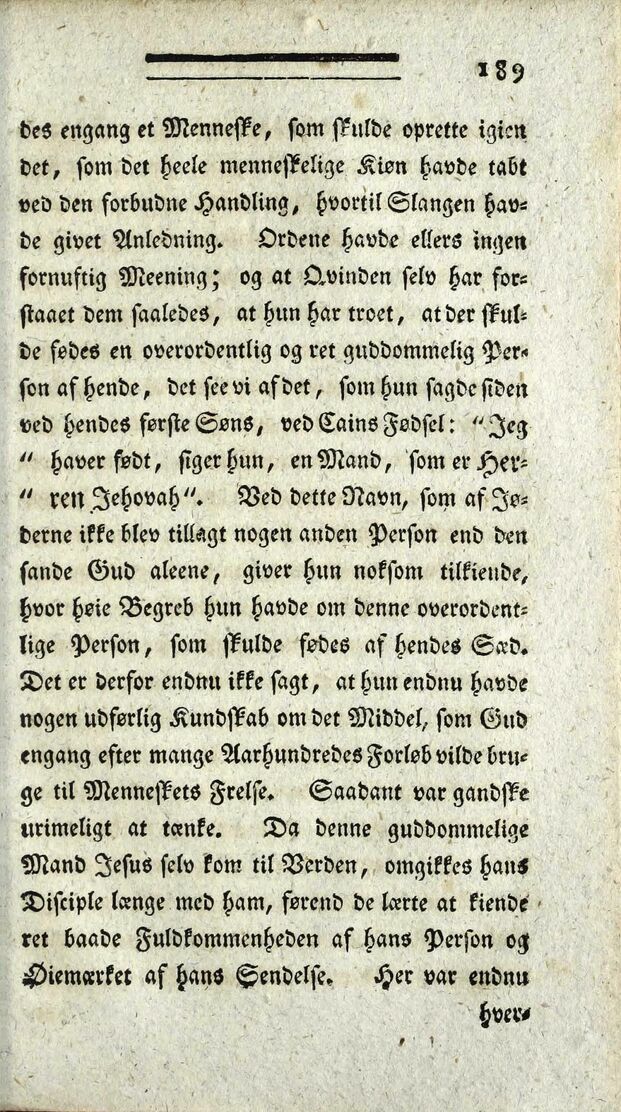 189
des engang et Menneske, som skulde oprette igien
det, som det heele menneskelige Kiøn havde tabt
ved den forbudne Handling, hvortil Slangen hav-
de givet Anledning. Ordene havde ellers ingen
fornuftig Meening; og at Qvinden selv har for-
staaet dem saaledes, at hun har troet, at der skul-
de fødes en overordentlig og ret guddommelig Per-
son af hende, det see vi af det, som hun sagde siden
ved hendes første Søns, ved Cains Fødsel: "Jeg
" haver født, siger hun, en Mand, som er Her-
" ren Jehovah". Ved dette Navn, som af Jø-
derne ikke blev tillagt nogen anden Person end den
sande Gud aleene, giver hun noksom tilkiende,
hvor høie Begreb hun havde om denne overordent-
lige Person, som skulde fødes af hendes Sæd.
Det er derfor endnu ikke sagt, at hun endnu havde
nogen udførlig Kundskab om det Middel, som Gud
engang efter mange Aarhundredes Forløb vilde bru-
ge til Menneskets Frelse. Saadant var gandske
urimeligt at tænke. Da denne guddommelige
Mand Jesus selv kom til Verden, omgikkes hans
Disciple længe med ham, førend de lærte at kiende
ret baade Fuldkommenheden af hans Person og
Øiemærket af hans Sendelse. Her var endnu
hver-